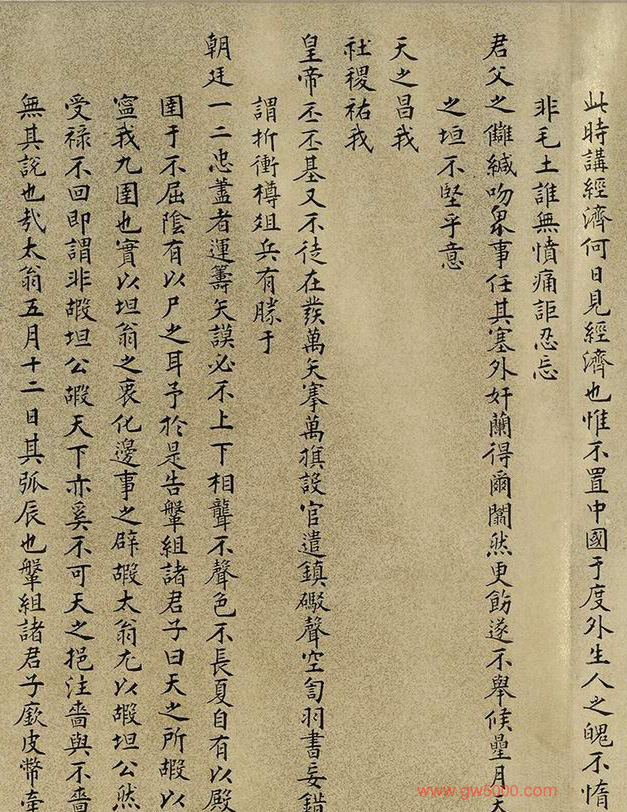 此時講經濟何日見經濟也惟不置中國于度外生人之魄不惰
非毛土誰無憤痛詎忍忘
君父之讎緘吻桌事任其塞外奸蘭得爾闌然更飭遂不舉候壘月
之垣不堅乎意
天之昌我
社稷祐我
皇帝丕丕基又不徒在發萬矢搴萬旗設官遣鎮礮聲空訇羽書妄錯
謂折衝樽俎兵有勝于
朝廷一二忠藎者運籌矢謨必不上下相聾不聲色不長夏自有以殿
圉于不屈陰有以尸之耳予於是告鞶組諸君子曰天之所嘏以
寍我九圉也實以坦翁之衷化邊事之辟嘏太翁尤以嘏坦公然
受祿不回即謂非嘏坦公嘏天下亦奚不可天之挹注嗇與不嗇
無其說也哉太翁五月十二日其弧辰也鞶組諸君子廞皮幣牽
www.gw5000.com